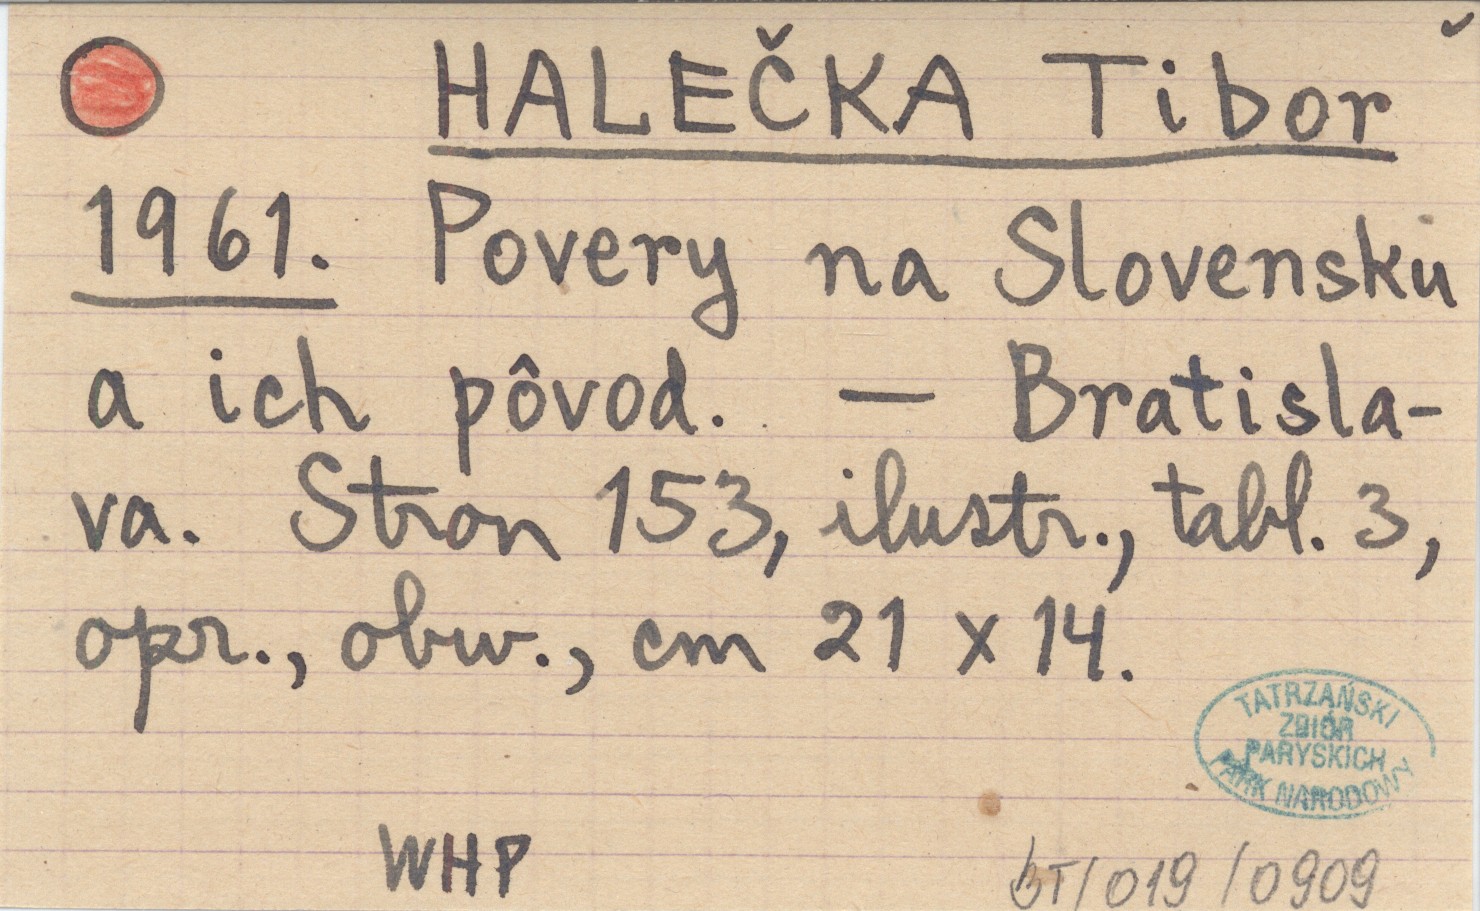 HALEČKA Tibor
1961. Povery na Slovensku
a ich pôvod. — Bratisla-
va. Stron 153, ilustr., tabl. 3,
opr., obw., cm 21 x 14.
TATRZAŃSKI
ZBIÓR
PARYSKICH
PARK NARODOWY
WHP
BT/019/0909